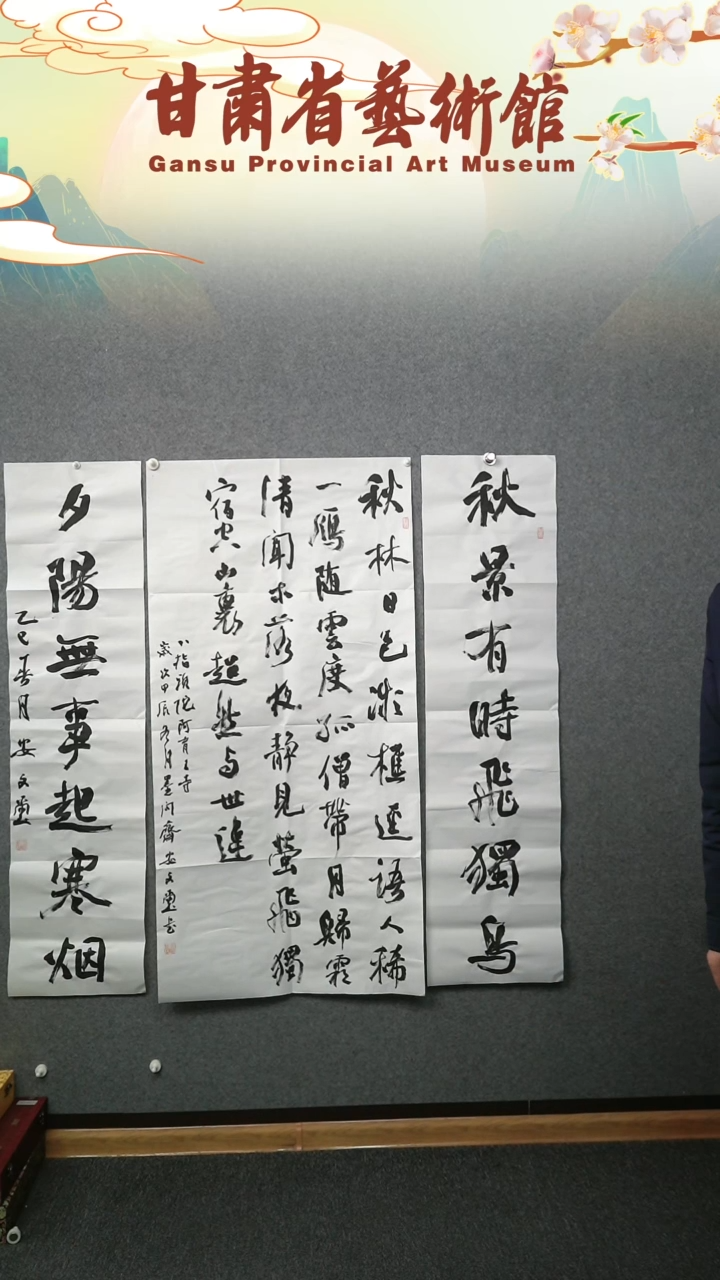 甘肅省藝術館
Gansu Provincial Art Museum
秋景有時飛獨鳥
秋林日色淡樵逕語人稀
一鴈随雲度孤僧帶月歸霜
清聞木落夜静見螢飛獨
宿空山裏超然与世違
八指頭陀阿育王寺
歲次甲辰冬月墨齋安文
夕陽無事起寒烟
乙巳春月安文